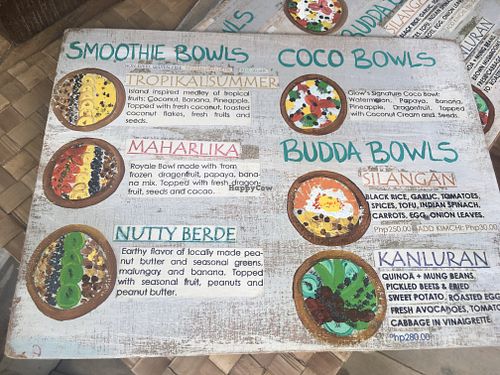 SMOOTHIE BOWLS
TROPIKALSUMMER
Island inspired medley of tropical
fruits: Coconut, Banana, Pineapple.
Topped with fresh coconut, toasted
coconut flakes, fresh fruits and
seeds.
MAHARLIKA
Royale Bowl made with from
frozen dragonfruit, papaya, bana-
na mix. Topped with fresh dragon
fruit, seeds and cacao.
NUTTY BERDE
Earthy flavor of locally made pea-
nut butter and seasonal greens,
malungay and banana. Topped
with seasonal fruit, peanuts and
peanut butter.
COCO BOWLS
Glow's Signature Coco Bowl:
Watermelon, Papaya, Banana,
Pineapple, Dragonfruit. Topped
with Coconut Cream and Seeds.
BUDDA BOWLS
SILANGAN
BLACK RICE, GARLIC, TOMATOES,
SPICES, TOFU, INDIAN SPINACH,
CARROTS, EGG, ONION LEAVES.
Php250.00 ADD KIMCHI: Php30.00
KANLURAN
QUINOA + MUNG BEANS,
PICKLED BEETS & FRIED
SWEET POTATO, ROASTED EGG
FRESH AVOCADOES, TOMATO,
CABBAGE IN VINAIGRETTE.
Php280.00
HappyCow
BUDDA
SILANGAN
KANLURAN